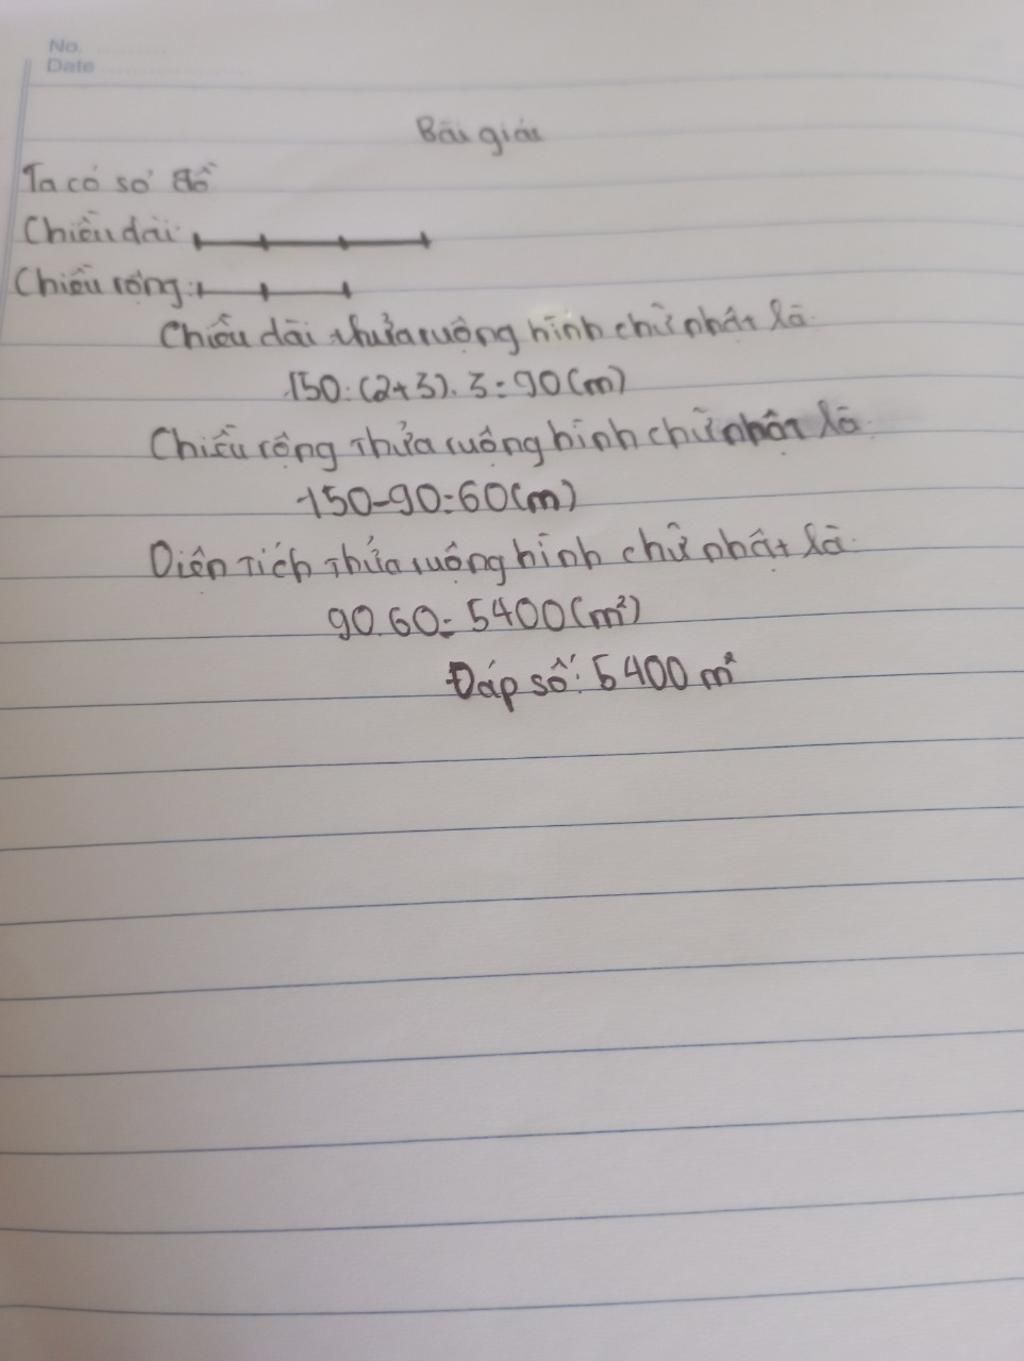 No.
Date
Bài giải
Ta có sơ đồ
Chiều dài:
Chiều rộng:
Chiều dài thửa ruộng hình chữ nhật là:
150:(2+3).3=90(m)
Chiều rộng thửa ruộng hình chữ nhật là:
150-90=60(m)
Diện tích thửa ruộng hình chữ nhật là:
90.60=5400(m²)
Đáp số: 5400 m²